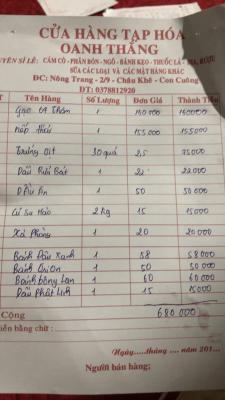 CỬA HÀNG TẠP HÓA
OANH THẮNG
CHUYÊN SỈ LẺ: CÁM CÒ - PHÂN BÓN - NGÔ - BÁNH KẸO - THUỐC LÁ - BIA, RƯỢU
SỮA CÁC LOẠI VÀ CÁC MẶT HÀNG KHÁC
ĐC: Nông Trang - 2/9 - Châu Khê - Con Cuông
ĐT: 0378812920
Tên Hàng Số Lượng Đơn Giá Thành Tiền
Gạo 1 160000 160000
nếp 1 155.000 155000
Trứng Vịt 30 quả 2,5 75000
Dầu Rửa Bát 1 22 22000
Dầu Ăn 1 50 50000
Củ Su Hào 2 kg 15 15000
Xà Phòng 1 20 20000
Bánh Đậu Xanh 1 58 58000
Bánh Orion 1 50 50 000
Bánh bông lan 1 60 60 000
Dầu Phật Linh 1 15 15000
Cộng 680 000
tiền bằng chữ:
Ngày.....tháng .... năm 201...
Người bán hàng: